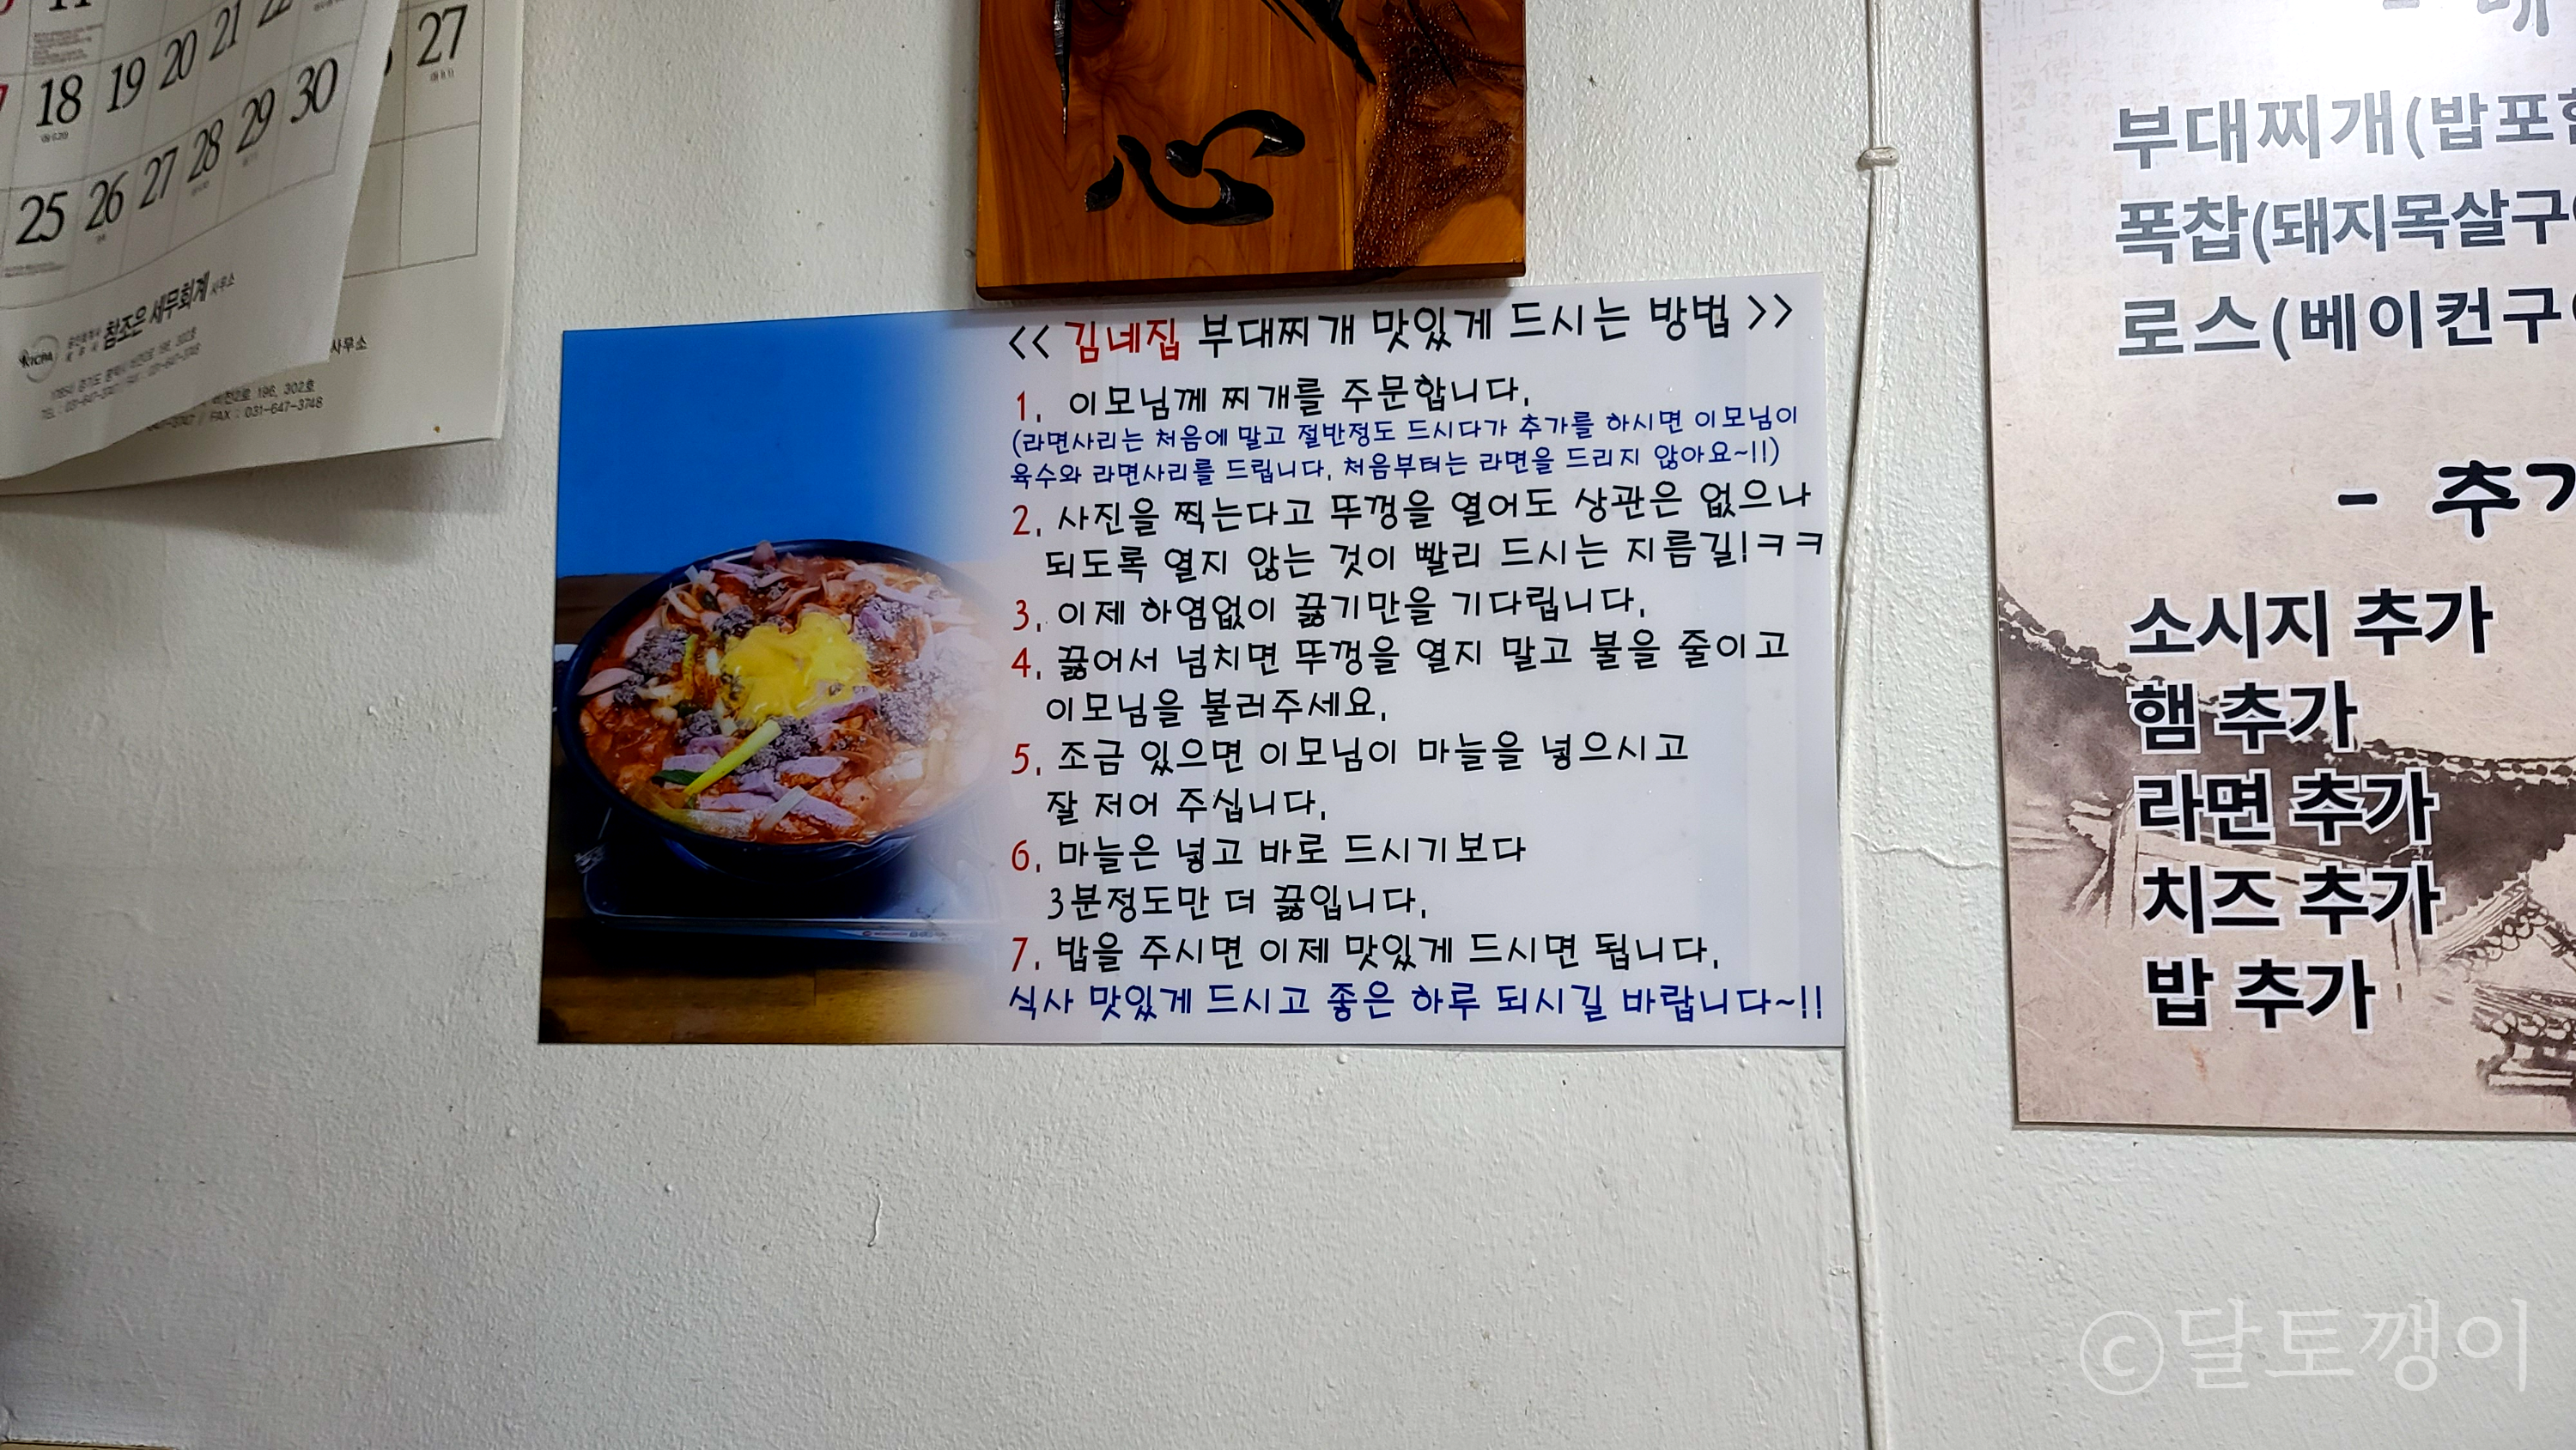 18 19 20 21
25 26 27 28 29 30
27
KICPA 참조은 세무회계 사무소
사무소
비전2로 196, 302호
FAX : 031-647-3748
心
<< 김네집 부대찌개 맛있게 드시는 방법 >>
1. 이모님께 찌개를 주문합니다.
(라면사리는 처음에 말고 절반정도 드시다가 추가를 하시면 이모님이
육수와 라면사리를 드립니다. 처음부터는 라면을 드리지 않아요~!!)
2. 사진을 찍는다고 뚜껑을 열어도 상관은 없으나
되도록 열지 않는 것이 빨리 드시는 지름길!ㅋㅋ
3. 이제 하염없이 끓기만을 기다립니다.
4. 끓어서 넘치면 뚜껑을 열지 말고 불을 줄이고
이모님을 불러주세요.
5. 조금 있으면 이모님이 마늘을 넣으시고
잘 저어 주십니다.
6. 마늘은 넣고 바로 드시기보다
3분정도만 더 끓입니다.
7. 밥을 주시면 이제 맛있게 드시면 됩니다.
식사 맛있게 드시고 좋은 하루 되시길 바랍니다~!!
부대찌개(밥포
폭찹(돼지목살구
로스(베이컨구
- 추
소시지 추가
햄 추가
라면 추가
치즈 추가
밥 추가
©달토깽이